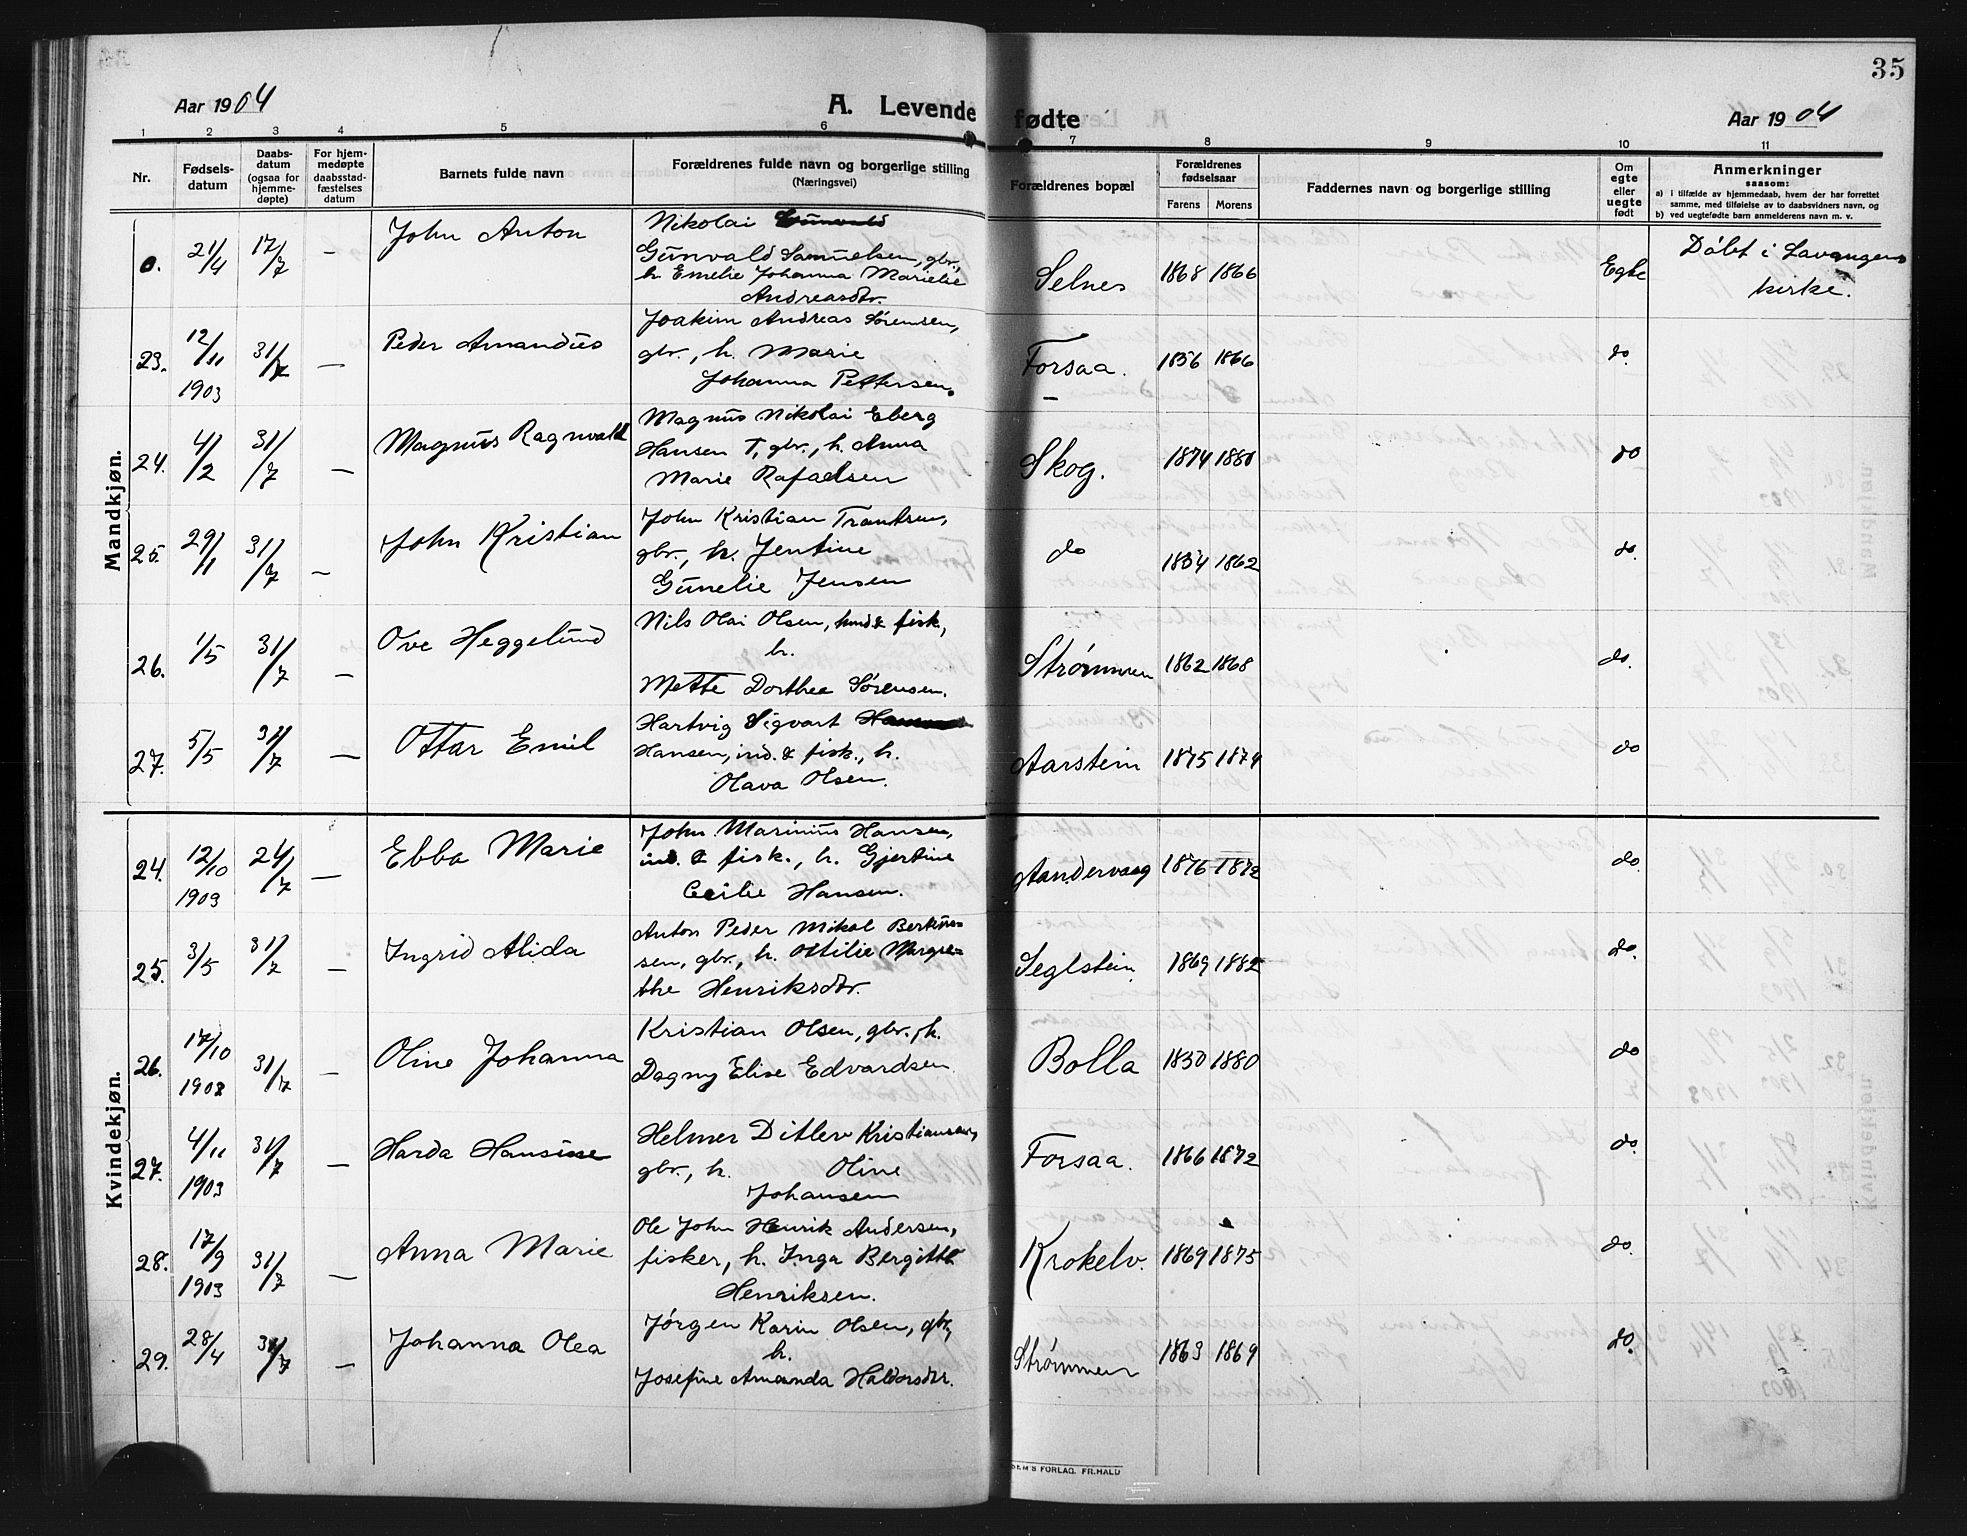 35
Aar 1904
A. Levende fødte
Aar 1904
1 2 3 4 5 6 7 8 9 10 11
Nr.
Fødsels-
datum
Daabs-
datum
(ogsaa for
hjemme-
døpte)
For hjem-
medøpte
daabsstad-
fæstelses
datum
Barnets fulde navn
Forældrenes fulde navn og borgerlige stilling
(Næringsvei)
Forældrenes bopæl
Forældrenes
fødselsaar
Farens Morens
Faddernes navn og borgerlige stilling
Om
egte
eller
uegte
født
Anmerkninger
saasom:
a) i tilfælde av hjemmedaab, hvem der har forrettet
samme, med tilføielse av to daabsvidners navn, og
b) ved uegtefødte barn anmelderens navn m. v.
Mandkjøn.
0. 21/4 17/7 — John Anton
Nikolai Gunvald
Gunvald Samuelsen, gbr.,
h. Emelie Johanna Marielie
Andreasdtr.
Selnes 1868 1866 Egte
Døbt i Lavangens
kirke.
23. 12/11 1903 31/7 — Peder Amandus
Joakim Andreas Sørensen,
gbr., h. Marie
Johanna Pettersen.
Forsaa. 1856 1866 do.
24. 4/2 31/7 — Magnus Ragnvald
Magnus Nikolai Eberg
Hansen T, gbr., h. Anna
Marie Rafaelsen
Skog. 1874 1880 do
25. 29/1 31/7 — John Kristian
John Kristian Trantsen,
gbr., h. Jentine
Gunelie Jensen
do 1854 1862 do.
26. 1/5 31/7 — Ove Heggelund
Nils Olai Olsen, ind. & fisk.,
h.
Mette Dorthea Sørensen.
Strømmen 1862 1868 do.
27. 5/5 31/7 — Ottar Emil
Hartvig Sigvart
Hansen, ind. & fisk., h.
Olava Olsen.
Aarstein 1875 1879 do
Kvindekjøn.
24. 12/10 1903 24/7 — Ebba Marie
John Marinius Hansen,
ind. & fisk., h. Gjertine
Cecilie Hansen.
Aandervaag 1876 1872 do
25. 3/5 31/7 — Ingrid Alida
Anton Peder Mikal Berteus-
sen, gbr., h. Ottilie Margre-
the Henriksdtr.
Seglstein 1869 1882 do.
26. 17/10 1903 31/7 — Oline Johanna
Kristian Olsen, gbr., h.
Dagny Elise Edvardsen
Bolla 1850 1880 do
27. 4/11 1903 31/7 — Harda Hansine
Helmer Ditlev Kristiansen,
gbr., h. Oline
Johansen
Forsaa. 1866 1872 do.
28. 17/9 1903 31/7 — Anna Marie
Ole John Henrik Andersen,
fisker, h. Inga Bergitte
Henriksen.
Krokelv. 1869 1875 do.
29. 28/4 31/7 — Johanna Olea
Jørgen Karin Olsen, gbr,
h.
Josefine Amanda Haldorsdtr.
Strømmen 1863 1869 do.
SEM'S FORLAG. FR.HALD